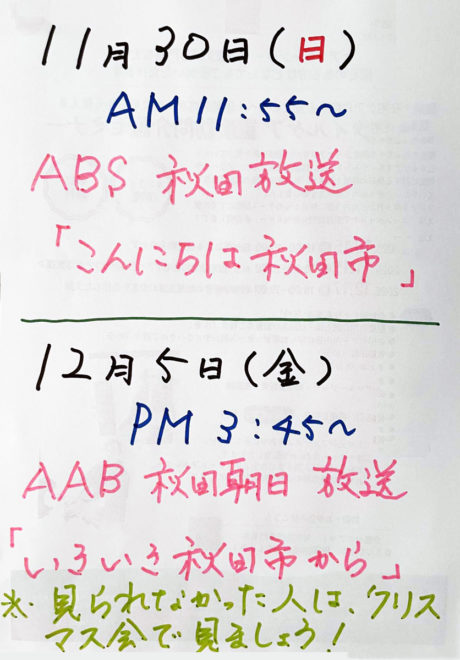 11月30日(日)
AM11:55~
ABS 秋田放送
「こんにちは秋田市」
12月5日(金)
PM 3:45~
AAB 秋田朝日 放送
「いきいき秋田市から」
※ 見られなかった人は、クリス
マス会で見ましょう!